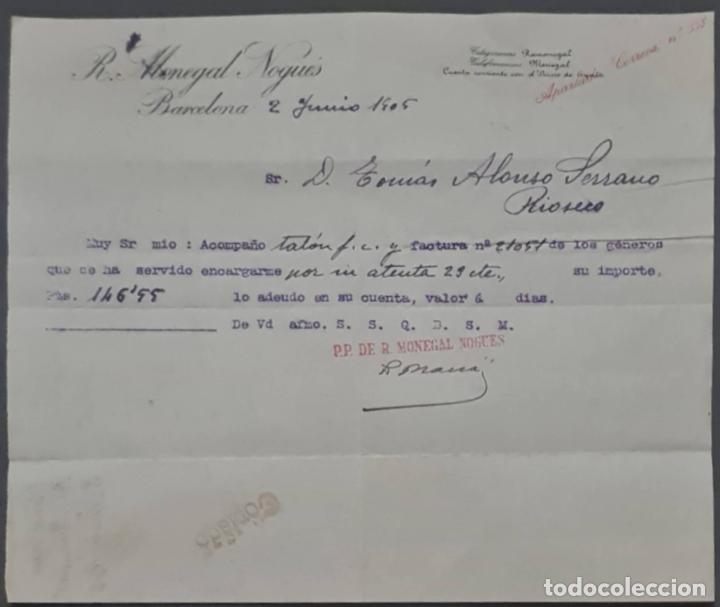 R. Monegal Nogués
Barcelona 2 Junio 1905
Telegramas Ramonegal
Telefonemas Monegal
Cuenta corriente con el Banco de España
Apartado Correos nº
Sr. D. Tomás Alonso Serrano
Rioseco
Muy Sr mio : Acompaño talón f. c. y factura nº de los géneros
que se ha servido encargarme por su atenta 29 cte., su importe,
Pts. 146'55 lo adeudo en su cuenta, valor á días.
De Vd afmo. S. S. Q. B. S. M.
P.P. DE R. MONEGAL NOGUES
todocoleccion.net